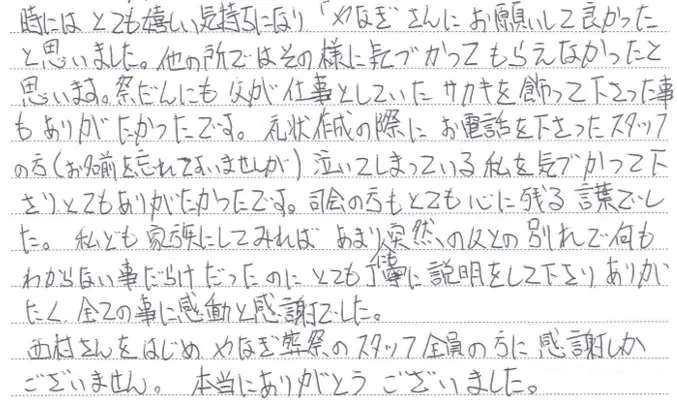 時にはとても嬉しい気持ちになり「やなぎ」さんにお願いして良かった
と思いました。他の所ではその様に気づかってもらえなかったと
思います。祭だんにも父が仕事としていたサカキを飾って下さった事
もありがたかったです。礼状作成の際にお電話を下さったスタッフ
の方(お名前を忘れてすいませんが)泣いてしまっている私を気づかって下
さりとてもありがたかったです。司会の方もとても心に残る言葉でし
た。私ども家族にしてみればあまり突然の父との別れで何も
わからない事だらけだったのにとても丁寧に説明をして下さりありが
たく全ての事に感動と感謝でした。
西村さんをはじめやなぎ葬祭のスタッフ全員の方に感謝しか
ございません。本当にありがとうございました。